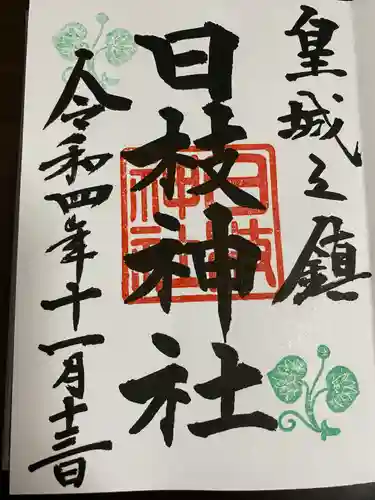 皇城之鎮
日枝神社
令和四年十一月十三日
日枝
神社